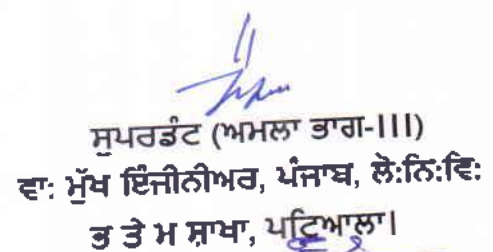 ਸੁਪਰਡੰਟ (ਅਮਲਾ ਭਾਗ-III)
ਵਾ: ਮੁੱਖ ਇੰਜੀਨੀਅਰ, ਪੰਜਾਬ, ਲੋ:ਨਿ:ਵਿ:
ਭ ਤੇ ਮ ਸ਼ਾਖਾ, ਪਟਿਆਲਾ।